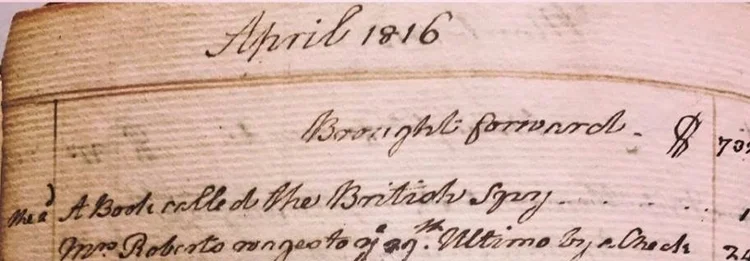 April 1816
Brought forward. $ 702
A Book called the British Spy
Mrs. Roberts wages to ye 29th. Ultimo by a Check